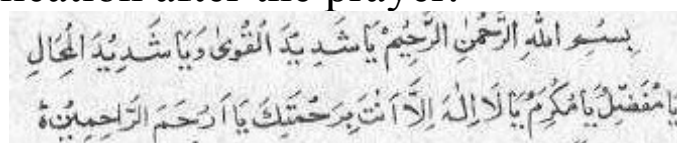 ication after the prayer.
بِسْمِ اللهِ الرَّحْمٰنِ الرَّحِيْمِ يَا شَدِيْدَ الْقُوٰى وَيَا شَدِيْدَ الْمِحَالِ
يَا مُفَضِّلُ يَا مُكْرِمُ يَا لَا اِلٰهَ اِلَّا اَنْتَ بِرَحْمَتِكَ يَا اَرْحَمَ الرَّاحِمِيْنَ ۃ